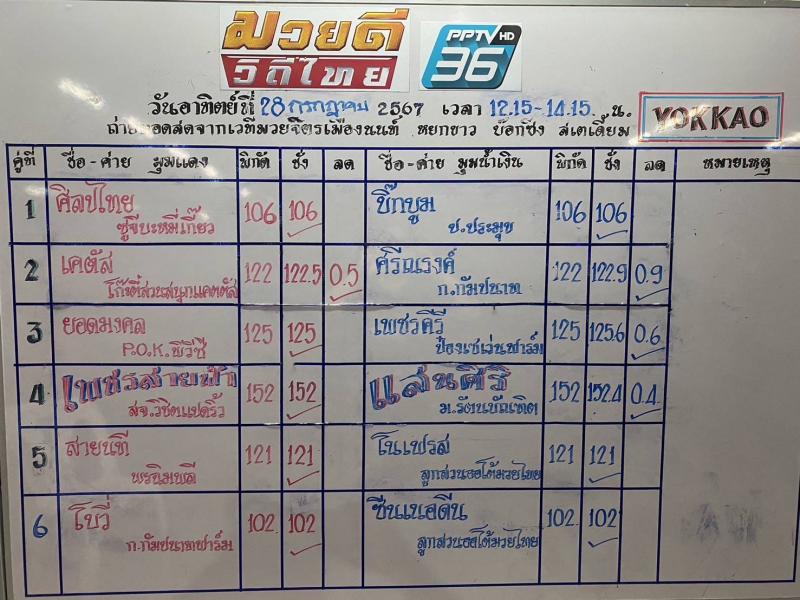 มวยดี
วิถีไทย
PPTV HD
36
วันอาทิตย์ที่ 28 กรกฎาคม 2567 เวลา 12.15-14.15. น.
ถ่ายทอดสดจากเวทีมวยจิตรเมืองนนท์ หยกขาว บ๊อกซิ่ง สเตเดี้ยม
YOKKAO
คู่ที่ ชื่อ-ค่าย มุมแดง พิกัด ชั่ง ลด ชื่อ-ค่าย มุมน้ำเงิน พิกัด ชั่ง ลด หมายเหตุ
1 ศิลป์ไทย 106 106 บิ๊กบูม 106 106
ซูจีบะหมี่เกี๊ยว ป.ประมุข
2 เคตัส 122 122.5 0.5 ศรีณรงค์ 122 122.9 0.9
โก๊ะตี๋สวนสนุกแคตตัส ก.กัมปนาท
3 ยอดมงคล 125 125 เพชรคีรี 125 125.6 0.6
P.O.K.พีวีซี ป๋องเซเว่นฟาร์ม
4 เพชรสายฟ้า 152 152 แสนศิริ 152 152.4 0.4
สจ.วิชิตแปดริ้ว ม.รัตนบัณฑิต
5 สายนที 121 121 โนเฟรส 121 121
พรนิมพลี ลูกสวนออโต้มวยไทย
6 โบวี่ 102 102 ซีนเนอดีน 102 102
ก.กัมปนาทฟาร์ม ลูกสวนออโต้มวยไทย